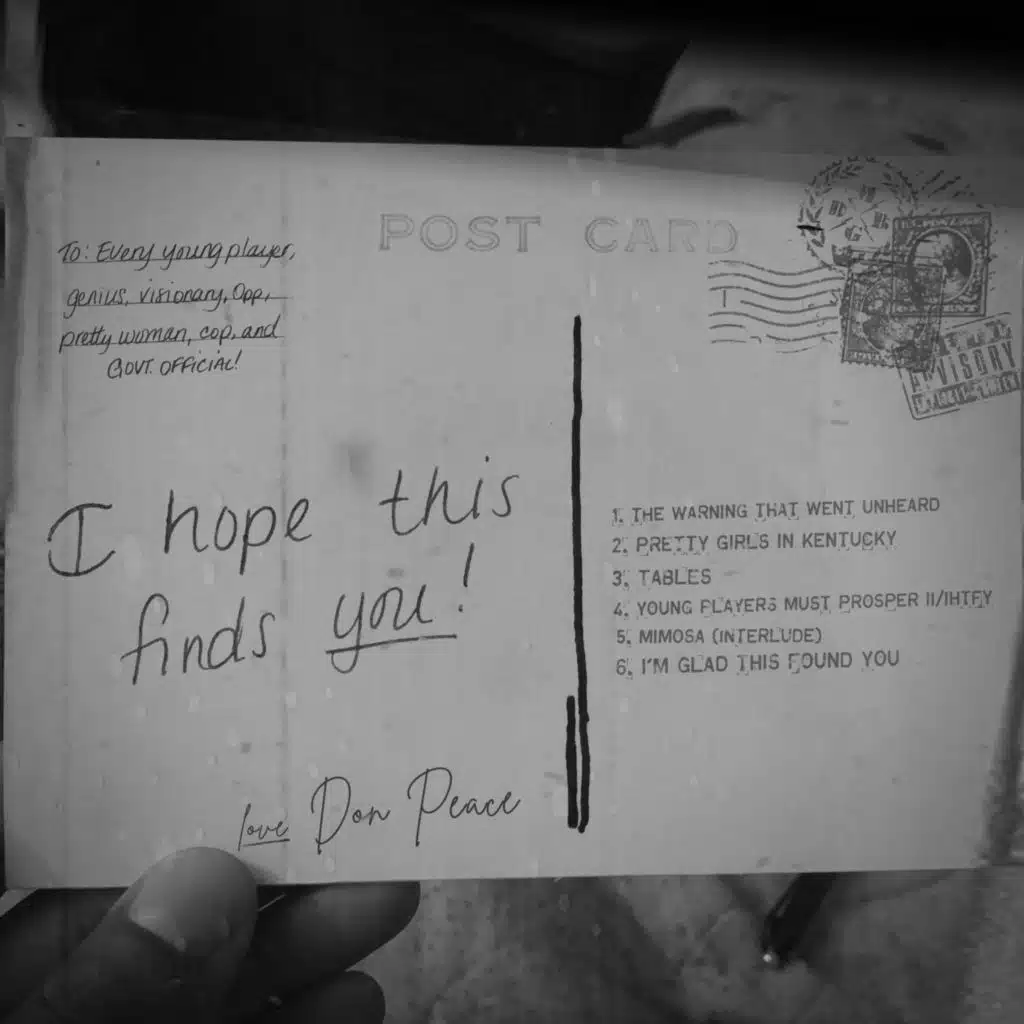 POST CARD
To: Every young player,
genius, visionary, Opp,
pretty woman, cop, and
GOVT. OFFICIAL!
I hope this
finds you!
love Don Peace
ADVISORY
1. THE WARNING THAT WENT UNHEARD
2. PRETTY GIRLS IN KENTUCKY
3. TABLES
4. YOUNG PLAYERS MUST PROSPER II/IHTFY
5. MIMOSA (INTERLUDE)
6. I'M GLAD THIS FOUND YOU